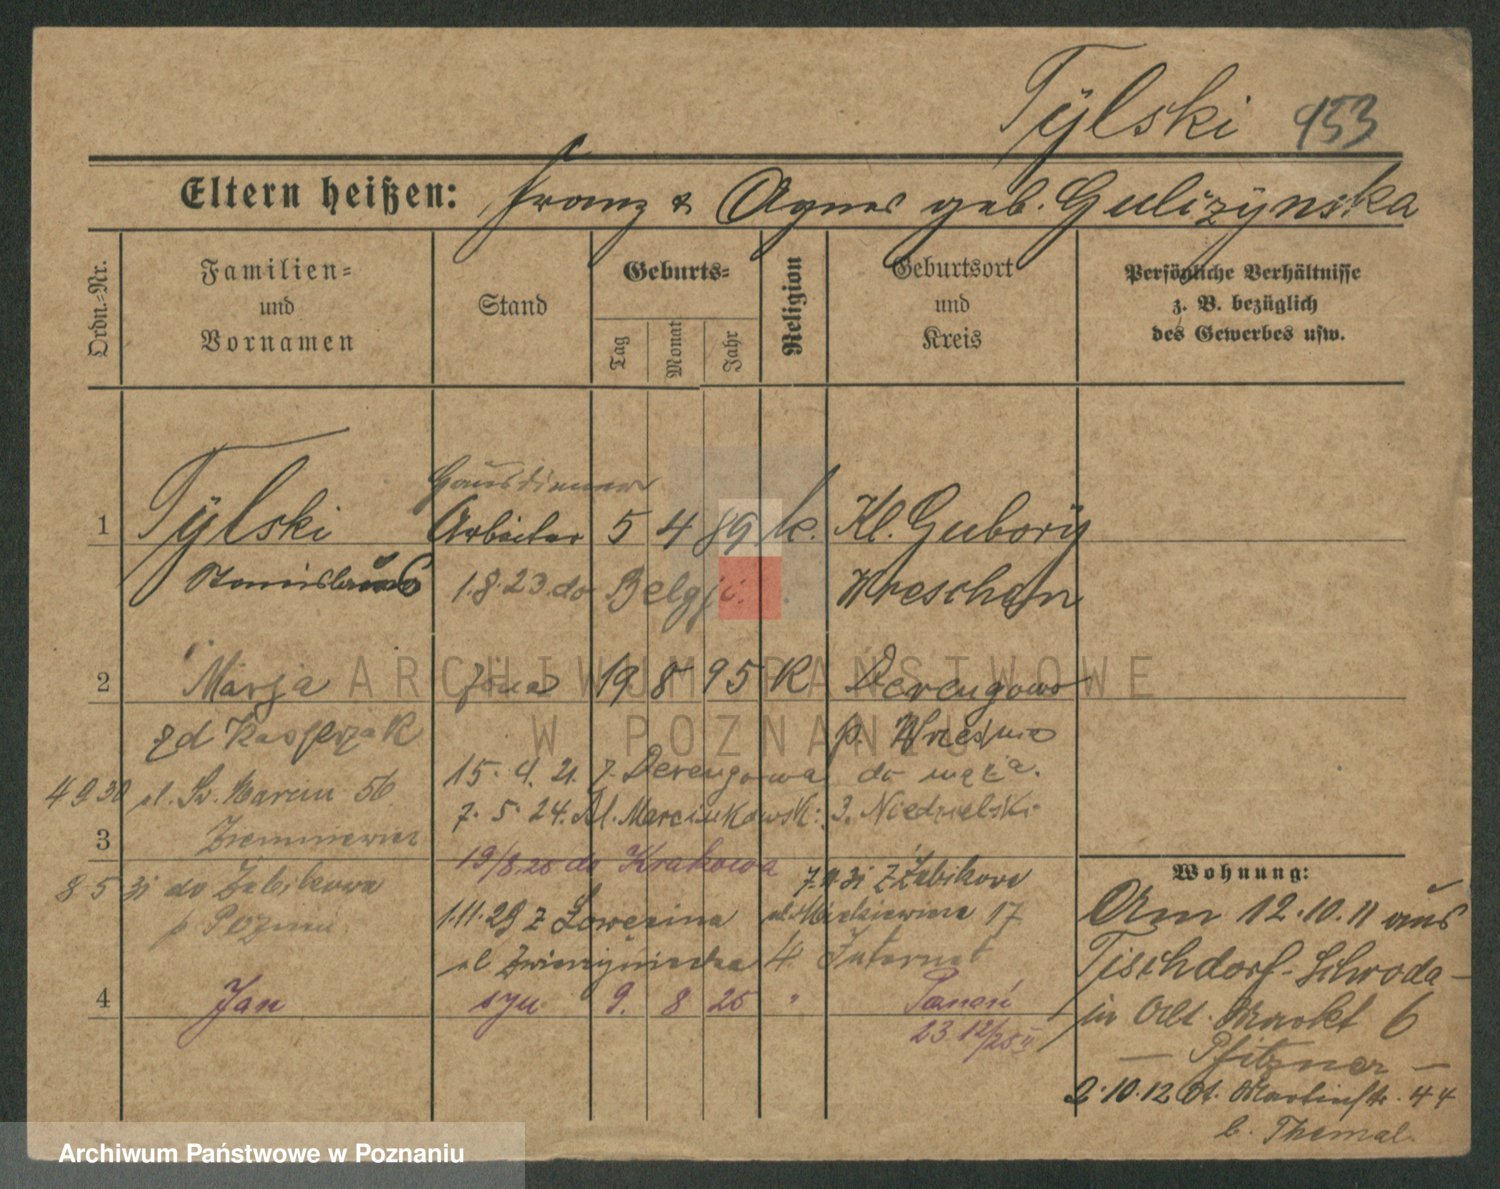 Tÿlski 953
Eltern heißen: Franz & Agnes geb. Gulizÿnska
Ordn.-Nr.
Familien- und Vornamen
Stand
Geburts-
Tag
Monat
Jahr
Religion
Geburtsort und Kreis
Persönliche Verhältnisse z. B. bezüglich des Gewerbes usw.
Hausdiener
1 Tÿlski Arbeiter 5 4 89 k. Kl. Guborÿ
Stanislaus 1.8.23 do Belgji. Wreschen
2 Marja żona 19 8 95 K Derengowo
zd Kasprzak p. Września
15. 4. 21. z. Derengowa do męża.
4 9 30 ul. Św. Marcin 56
7. 5. 24. Al. Marcinkowsk: 3. Niedzielski
3
19/8.25 do Krakowa
Wohnung:
8 5 31 do Żabikowa
7.4.31 z Żabikowa
p Poznań
1.11.29 z Ławesina ul. Mickiewicza 17
Am 12.10.11 aus
ul Zwierzyniecka 4. Internat
Tischdorf-Schroda-
4 Jan syn 9. 8 25 " Poznań
in Alt. Markt 6
23 12/25
— Pfitzner —
2.10.12 St. Martinstr. 44
b. Themal.
ARCHIWUM PAŃSTWOWE
W POZNANIU
Archiwum Państwowe w Poznaniu